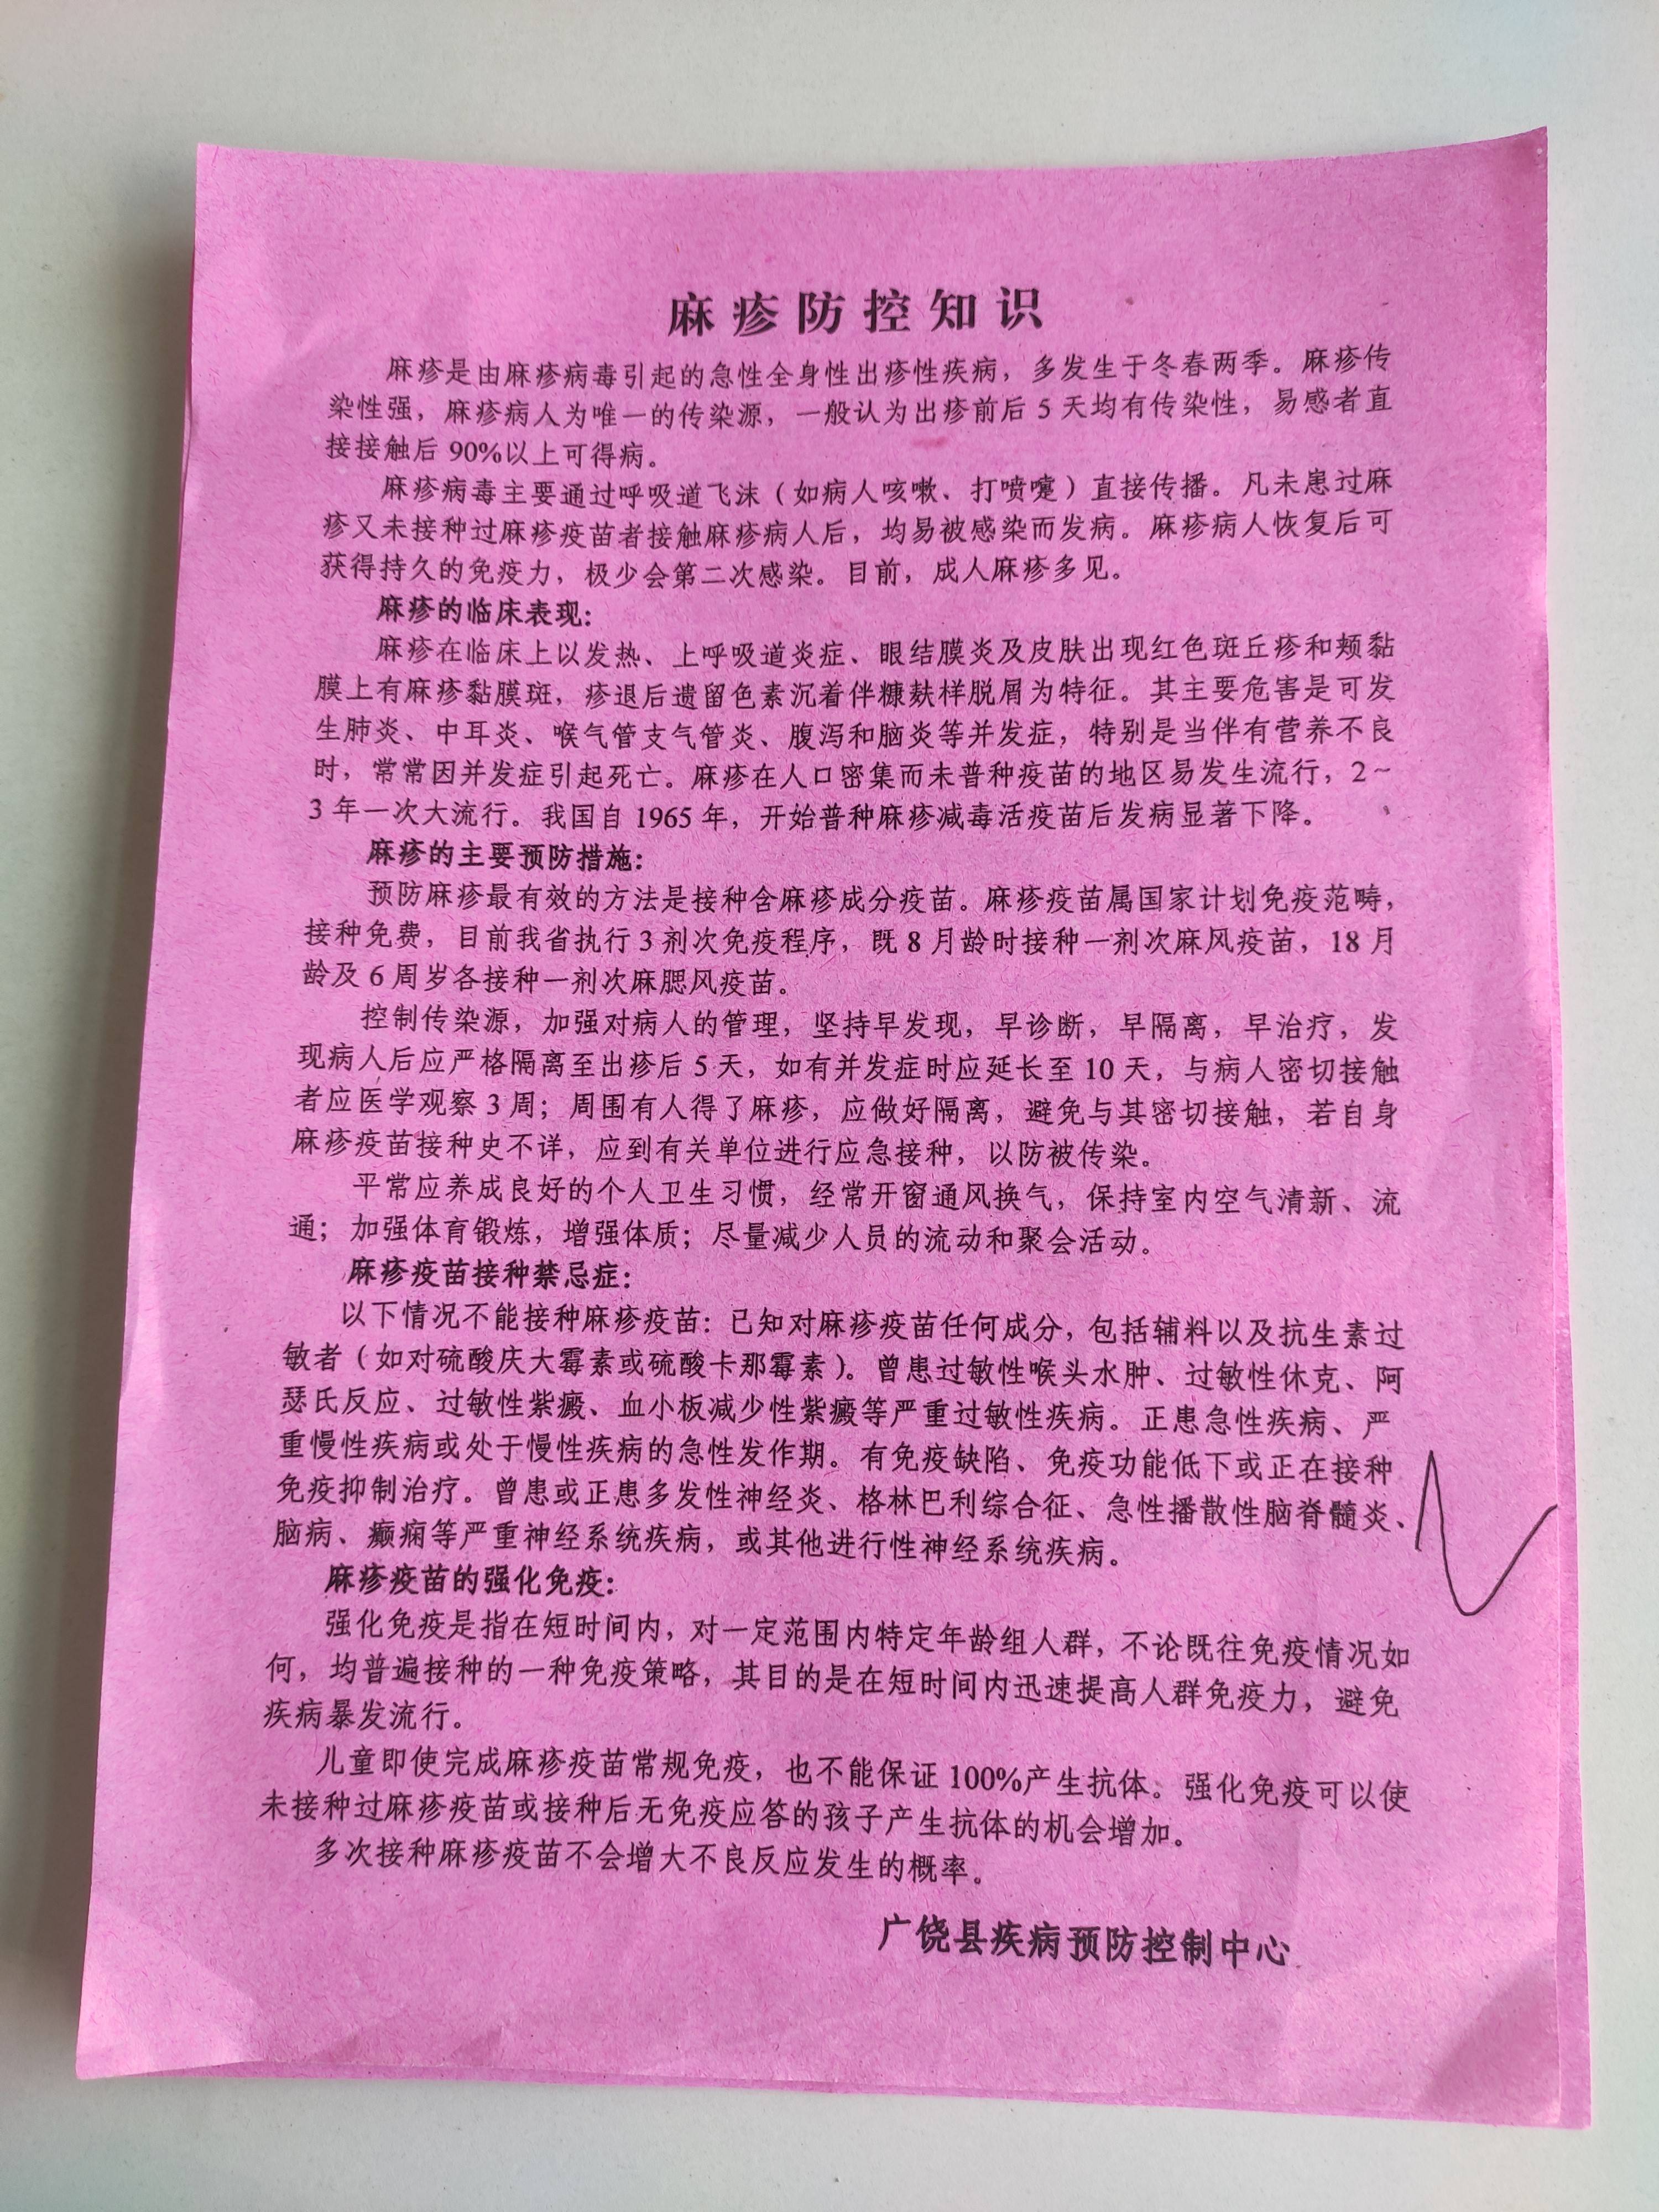 麻疹防控知识
麻疹是由麻疹病毒引起的急性全身性出疹性疾病，多发生于冬春两季。麻疹传
染性强，麻疹病人为唯一的传染源，一般认为出疹前后 5 天均有传染性，易感者直
接接触后 90%以上可得病。
麻疹病毒主要通过呼吸道飞沫（如病人咳嗽、打喷嚏）直接传播。凡未患过麻
疹又未接种过麻疹疫苗者接触麻疹病人后，均易被感染而发病。麻疹病人恢复后可
获得持久的免疫力，极少会第二次感染。目前，成人麻疹多见。
麻疹的临床表现：
麻疹在临床上以发热、上呼吸道炎症、眼结膜炎及皮肤出现红色斑丘疹和颊黏
膜上有麻疹黏膜斑，疹退后遗留色素沉着伴糠麸样脱屑为特征。其主要危害是可发
生肺炎、中耳炎、喉气管支气管炎、腹泻和脑炎等并发症，特别是当伴有营养不良
时，常常因并发症引起死亡。麻疹在人口密集而未普种疫苗的地区易发生流行，2～
3 年一次大流行。我国自 1965 年，开始普种麻疹减毒活疫苗后发病显著下降。
麻疹的主要预防措施：
预防麻疹最有效的方法是接种含麻疹成分疫苗。麻疹疫苗属国家计划免疫范畴，
接种免费，目前我省执行 3 剂次免疫程序，既 8 月龄时接种一剂次麻风疫苗，18 月
龄及 6 周岁各接种一剂次麻腮风疫苗。
控制传染源，加强对病人的管理，坚持早发现，早诊断，早隔离，早治疗，发
现病人后应严格隔离至出疹后 5 天，如有并发症时应延长至 10 天，与病人密切接触
者应医学观察 3 周；周围有人得了麻疹，应做好隔离，避免与其密切接触，若自身
麻疹疫苗接种史不详，应到有关单位进行应急接种，以防被传染。
平常应养成良好的个人卫生习惯，经常开窗通风换气，保持室内空气清新、流
通；加强体育锻炼，增强体质；尽量减少人员的流动和聚会活动。
麻疹疫苗接种禁忌症：
以下情况不能接种麻疹疫苗：已知对麻疹疫苗任何成分，包括辅料以及抗生素过
敏者（如对硫酸庆大霉素或硫酸卡那霉素）。曾患过敏性喉头水肿、过敏性休克、阿
瑟氏反应、过敏性紫癜、血小板减少性紫癜等严重过敏性疾病。正患急性疾病、严
重慢性疾病或处于慢性疾病的急性发作期。有免疫缺陷、免疫功能低下或正在接种
免疫抑制治疗。曾患或正患多发性神经炎、格林巴利综合征、急性播散性脑脊髓炎、
脑病、癫痫等严重神经系统疾病，或其他进行性神经系统疾病。
麻疹疫苗的强化免疫：
强化免疫是指在短时间内，对一定范围内特定年龄组人群，不论既往免疫情况如
何，均普遍接种的一种免疫策略，其目的是在短时间内迅速提高人群免疫力，避免
疾病暴发流行。
儿童即使完成麻疹疫苗常规免疫，也不能保证 100%产生抗体。强化免疫可以使
未接种过麻疹疫苗或接种后无免疫应答的孩子产生抗体的机会增加。
多次接种麻疹疫苗不会增大不良反应发生的概率。
广饶县疾病预防控制中心